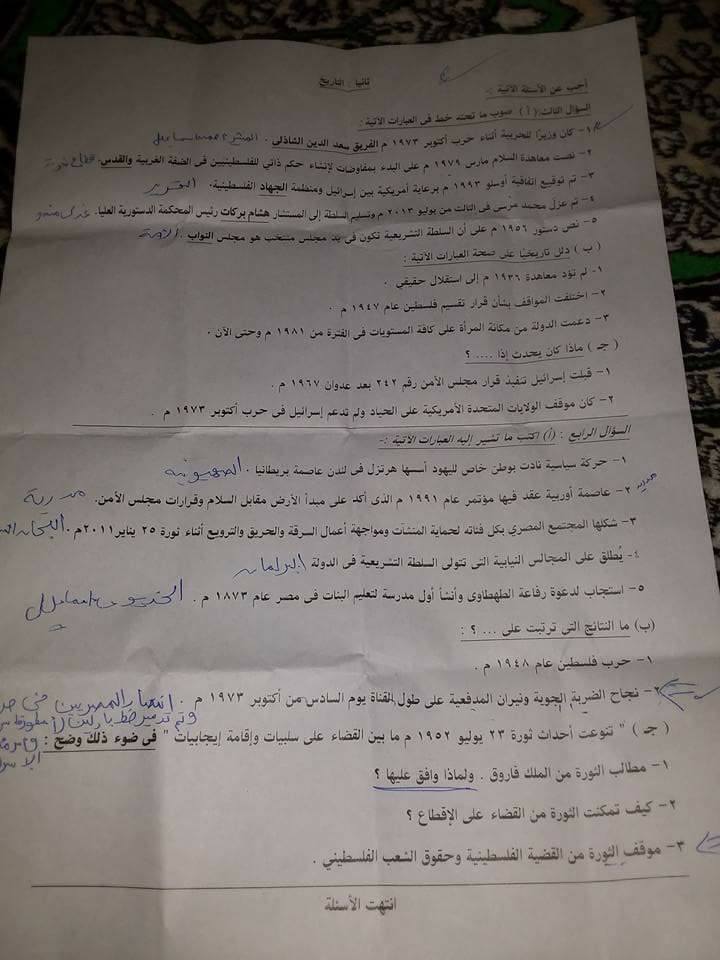 ثانيا : التاريخ
أجب عن الأسئلة الآتية :
السؤال الثالث : ( أ ) صوب ما تحته خط فى العبارات الآتية :
١- كان وزيرًا للحربية أثناء حرب أكتوبر ١٩٧٣ م الفريق سعد الدين الشاذلى . المشير أحمد إسماعيل
٢- نصت معاهدة السلام مارس ١٩٧٩ م على البدء بمفاوضات لإنشاء حكم ذاتي للفلسطينيين فى الضفة الغربية والقدس. قطاع غزة
٣- تم توقيع اتفاقية أوسلو ١٩٩٣ م برعاية أمريكية بين إسرائيل ومنظمة الجهاد الفلسطينية. التحرير
٤- تم عزل محمد مرسى فى الثالث من يوليو ٢٠١٣ م وتسليم السلطة إلى المستشار هشام بركات رئيس المحكمة الدستورية العليا. عدلى منصو
٥- نص دستور ١٩٥٦ م على أن السلطة التشريعية تكون فى يد مجلس منتخب هو مجلس النواب . الأمة
( ب ) دلل تاريخيًا على صحة العبارات الآتية :
١- لم تؤد معاهدة ١٩٣٦ م إلى استقلال حقيقي .
٢- اختلفت المواقف بشأن قرار تقسيم فلسطين عام ١٩٤٧ م .
٣- دعمت الدولة من مكانة المرأة على كافة المستويات فى الفترة من ١٩٨١ م وحتى الآن .
( جـ ) ماذا كان يحدث إذا .... ؟
١- قبلت إسرائيل تنفيذ قرار مجلس الأمن رقم ٢٤٢ بعد عدوان ١٩٦٧ م .
٢- كان موقف الولايات المتحدة الأمريكية على الحياد ولم تدعم إسرائيل فى حرب أكتوبر ١٩٧٣ م .
السؤال الرابع : (أ) اكتب ما تشير إليه العبارات الآتية :-
١- حركة سياسية نادت بوطن خاص لليهود أسسها هرتزل فى لندن عاصمة بريطانيا . الصهيونية
٢- عاصمة أوربية عقد فيها مؤتمر عام ١٩٩١ م الذى أكد على مبدأ الأرض مقابل السلام وقرارات مجلس الأمن. مدريد
٣- شكلها المجتمع المصري بكل فئاته لحماية المنشآت ومواجهة أعمال السرقة والحريق والترويع أثناء ثورة ٢٥ يناير ٢٠١١م . اللجان
٤- يُطلق على المجالس النيابية التى تتولى السلطة التشريعية فى الدولة البرلمان
٥- استجاب لدعوة رفاعة الطهطاوى وأنشأ أول مدرسة لتعليم البنات فى مصر عام ١٨٧٣ م . الخديو إسماعيل
(ب) ما النتائج التى ترتبت على ... ؟ :
١- حرب فلسطين عام ١٩٤٨ م .
٢- نجاح الضربة الجوية ونيران المدفعية على طول القناة يوم السادس من أكتوبر ١٩٧٣ م . انتصار المصريين فى
وتم تدمير خط بارليف
( جـ ) " تنوعت أحداث ثورة ٢٣ يوليو ١٩٥٢ م ما بين القضاء على سلبيات وإقامة إيجابيات " فى ضوء ذلك وضح :
١- مطالب الثورة من الملك فاروق . ولماذا وافق عليها ؟
٢- كيف تمكنت الثورة من القضاء على الإقطاع ؟
٣- موقف الثورة من القضية الفلسطينية وحقوق الشعب الفلسطيني .
انتهت الأسئلة